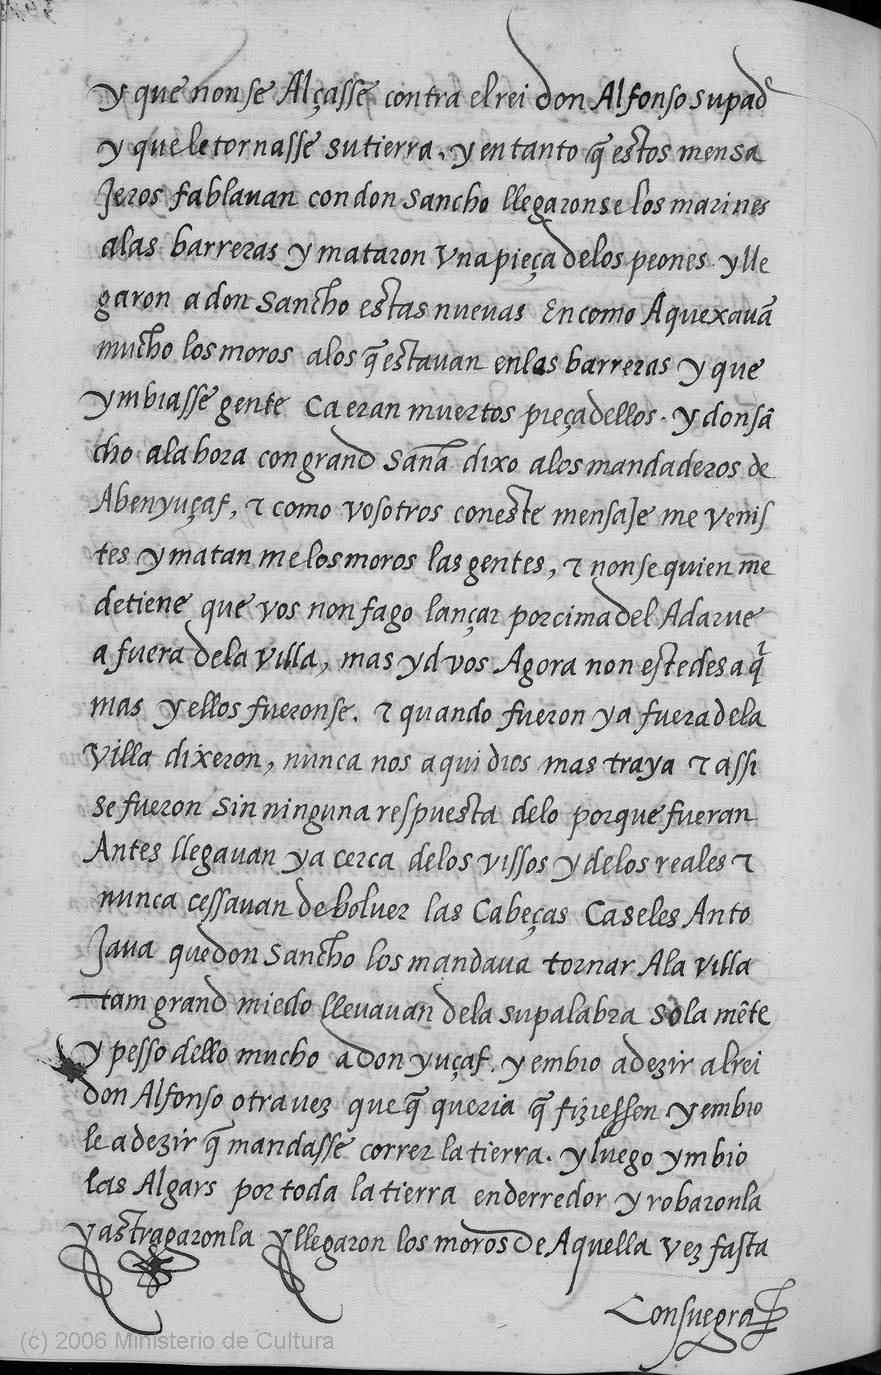 y que non se Alçasse contra el rei don Alfonso su padͤ
y que le tornasse su tierra. y en tanto q̃ estos mensa
jeros fablauan con don Sancho llegaronse los marines
a las barreras y mataron vna pieça de los peones. y lle
garon a don Sancho estas nueuas En como Aquexauã
mucho los moros a los q̃ estauan en las barreras y que
ymbiasse gente Ca eran muertos pieça dellos. y don sã
cho a la hora con grand Saña dixo a los mandaderos de
Abenyuçaf, τ como vosotros con este mensaje me venis
tes y matan me los moros las gentes, τ non se quien me
detiene que vos non fago lançar por cima del Adarue
a fuera de la Villa, mas yd vos Agora non estedes a q̃
mas y ellos fueronse. τ quando fueron ya fuera de la
Villa dixeron, nunca nos aqui dios mas traya τ assi
se fueron sin ninguna respuesta de lo porque fueran
Antes llegauan ya cerca de los vissos y de los reales τ
nunca cessauan de boluer las Cabeças Ca se les Anto
jaua que don Sancho los mandaua tornar A la villa
tam grand miedo lleuauan de la su palabra sola mẽte
y pesso dello mucho a don yuçaf. y embio a dezir al rei
don Alfonso otra vez que q̃ queria q̃ fiziessen y embio
le a dezir q̃ mandasse correr la tierra. y luego ymbio
las Algars por toda la tierra enderredor y robaronla
y astragaronla y llegaron los moros de Aquella vez fasta
Consuegra
(c) 2006 Ministerio de Cultura